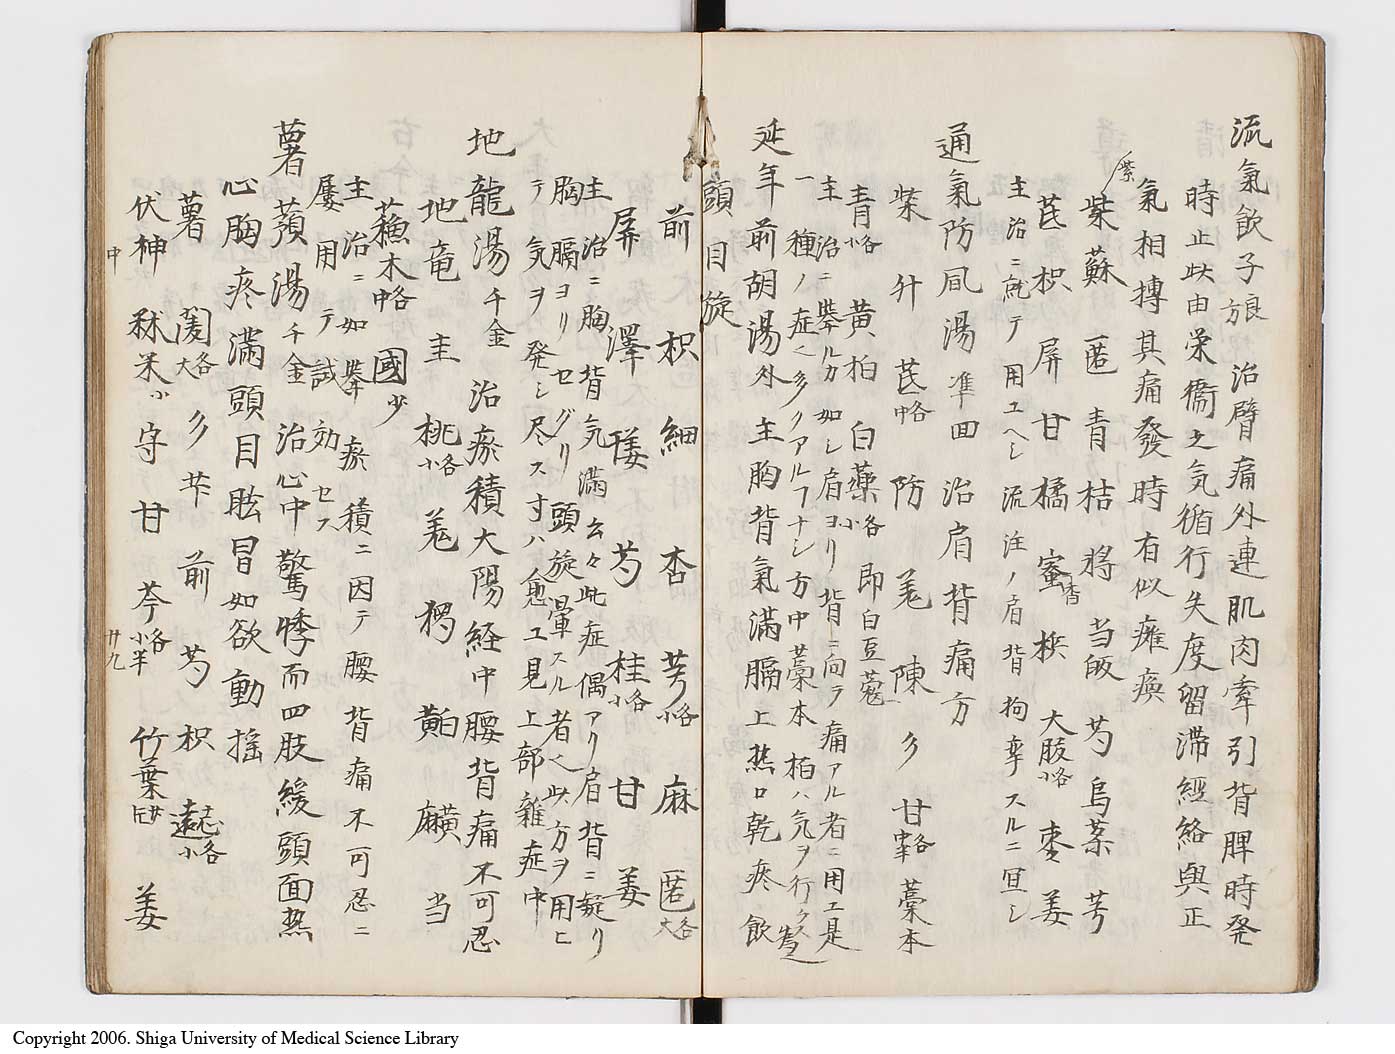 流氣飲子 良方 治臂痛外連肌肉牽引背脾時発
時止此由栄衛之気循行失度留滞經絡與正
氣相搏其痛發時有似癱瘓
紫
紫蘇 匿 青 桔 将 当皈 芍 烏薬 芎
芪 枳 屏 甘 橘 蜜香 梹 大腹各小 枣 姜
主治ニ就テ用エヘシ流注ノ肩背拘挛スルニ宜シ
通氣防風湯 準四 治肩背痛方
柴 升 芪各中 防 羗 陳 甘 各中 藁本
青各小 黄柏 白薬各小 即白豆蔻
主治ニ挙ルカ如シ肩ヨリ背ニ向ヲ痛アル者ニ用エ是
一種ノ症也多クアルフナシ方中藁本柏ハ気ヲ行ラス
延年前胡湯 外 主胸背氣滿膈上熱口乾疼飲
頭目旋
前 枳 細 杏 芎各小 麻 匿各大
屏 澤 芍 桂各小 甘 姜
主治ニ胸背気滿云々此症偶アリ肩背ニ凝リ
胸膈ヨリセグリ頭旋暈スル者也此方ヲ用ヒ
テ気ヲ発シ尽ス寸ハ愈エ見上部雜症中
地龍湯 千金 治瘀積大陽経中腰背痛不可忍
地竜 主 桃各小 羗 当
蘓木各中 國少
主治ニ如挙瘀積ニ因テ腰背痛不可忍ニ
屡用テ試効セス
薯蕷湯 千金 治心中驚悸而四肢緩頭面熱
心胸疼滿頭目眩冒如欲動揺
薯 各大 前 芍 枳 遠志各小
伏神 秫米小 守 甘 芩各小半 竹葉 姜
中
廿九
Copyright 2006. Shiga University of Medical Science Library